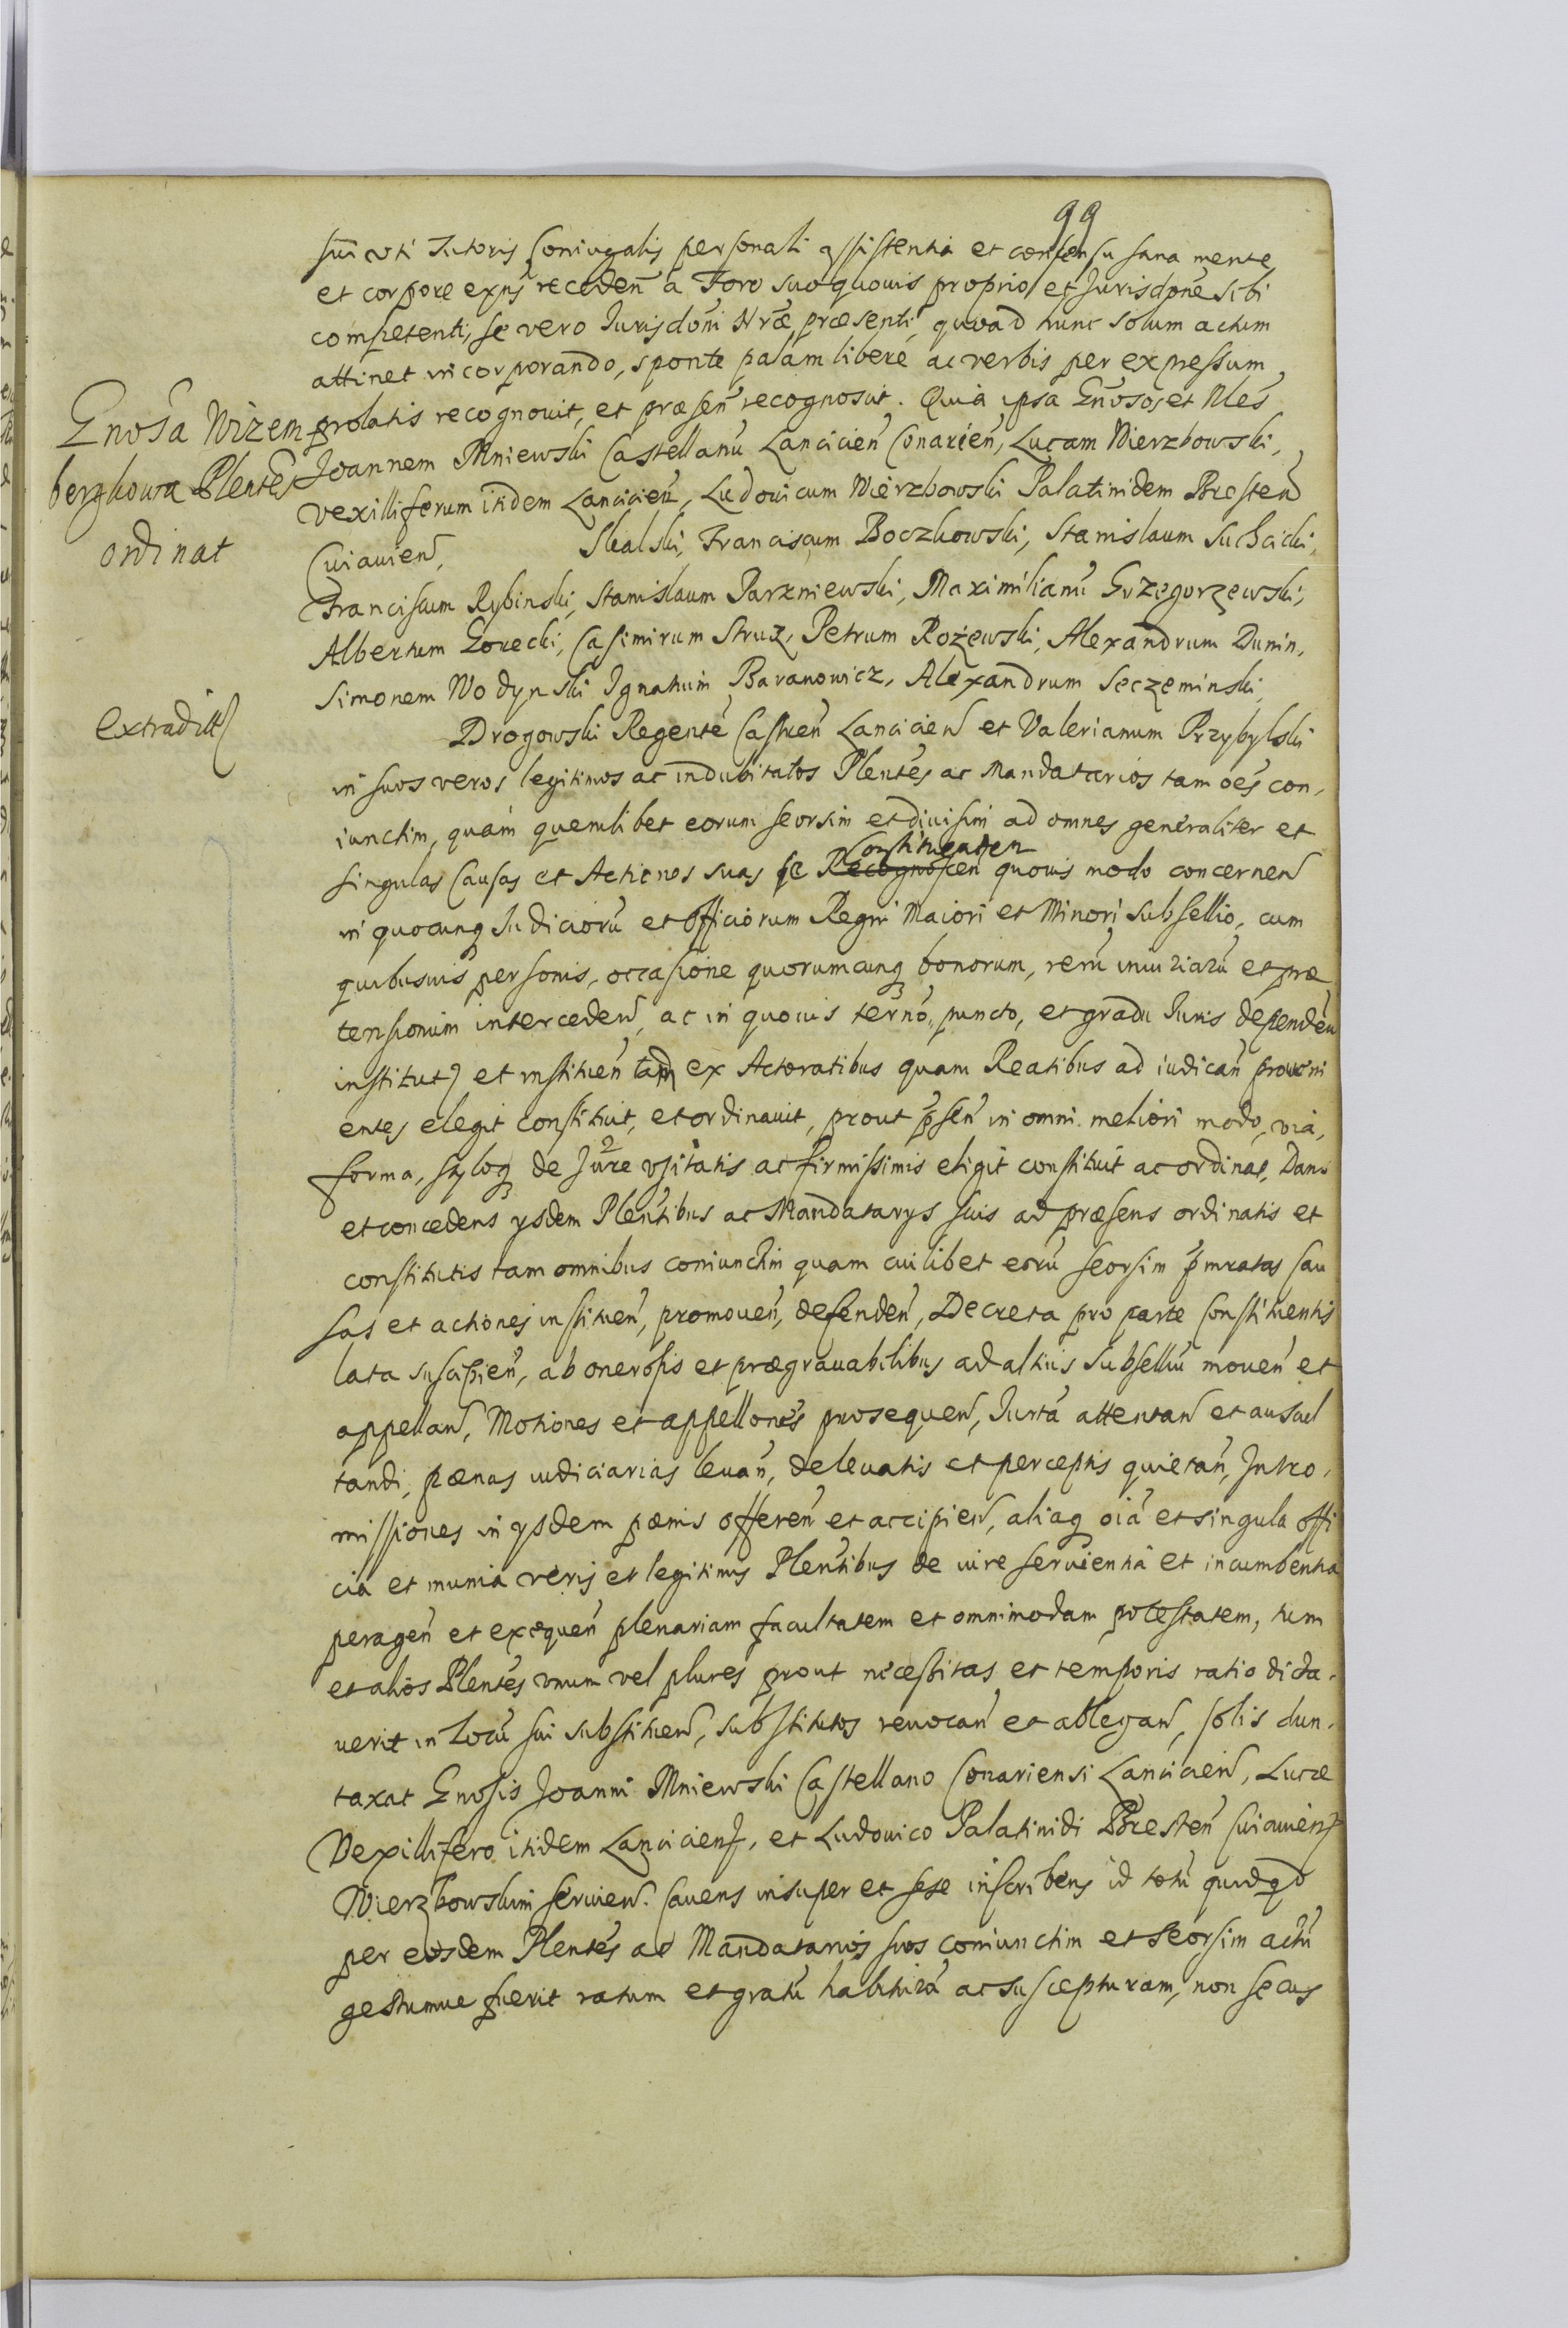 99
sui uti Tutoris Coniugalis personali assistentia et consensu sana mente
et corpore exñs recedeñ a Foro suo quovis proprio et Jurisdõne sibi
competenti, se vero Jurisdõni Nræ præsenti quoad hunc solum actum
attinet incorporando, sponte palam libere ac verbis per expressum
prolatis recognovit, et præseñ recognoscit. Quia ipsa Gñosos et Nles
Gñosa Wizem
berghowa Plentes
ordinat
Joannem Mniewski Castellanũ Lancicieñ Conarieñ, Lucam Wierzbowski,
vexilliferum itidem Lancicieñ, Ludovicum Wierzbowski Palatinidem Bresteñ
Cuiavieñ, Skalski, Franciscum Boczkowski, Stanislaum Suchcicki,
Franciscum Rybinski, Stanislaum Parzniewski, Maximilianũ Grzegorzewski,
Albertum Gorecki, Casimirum Struz, Petrum Rożewski, Alexandrum Dunin,
Simonem Wodynski Ignatium Baranowicz, Alexandrum Seczeminski,
extradit
Drogowski Regentẽ Castreñ Lancicieñ et Valerianum Przybylski
in suos veros legitimos ac indubitatos Plentes ac Mandatarios tam oẽs con,
iunctim, quam quemlibet eorum seorsim et divisim ad omnes generaliter et
Constituenten
singulas Causas et Actiones suas se Recognosceñ quovis modo concerneñ
in quocunq Judiciorũ et officiorum Regni Maiori et Minori subsellio, cum
quibusvis personis, occasione quorumcunq bonorum, rerũ iniuriarũ et præ
tensionum intercedeñ, ac in quovis termõ, puncto, et gradu Juris dependeñ
institut et instituen tam ex Actoratibus quam Reatibus ad iudicañ proveni
entes elegit constituit, et ordinavit, prout pseñ in omni meliori modo, via,
forma, styloq de Jure usitatis ac firmissimis eligit constituit ac ordinat, Dans
et concedens ysdem Plentibus ac Mandatarys suis ad præsens ordinatis et
constitutis tam omnibus coniunctim quam cuilibet eorũ seorsim pmratas Cau
sas et actiones instituen, promoveñ, defendeñ, Decreta pro parte Constituentis
lata suscipieñ, ab onerosis et prægravabilibus ad altius subselliũ moveñ et
appellañ, Motiones et appellones prosequeñ, Jurta attentañ et auscul
tandi, pænas iudiciarias levañ, de levatis et perceptis quietañ, Intro,
missiones in ysdem pænis offereñ et accipieñ, aliaq oia et singula offi
cia et munia veris et legitimis Plentibus de iure servientia et incumbentia
perageñ et exequeñ plenariam facultatem et omnimodam potestatem, tum
et alios Plentes unum vel plures prout necessitas et temporis ratio dicta,
verit in Locũ sui substitueñ, substitutos revocañ et ablegañ, solis dun,
taxat Gnosis Joanni Mniewski Castellano Conariensi Lancicieñ, Lucæ
Vexillifero itidem Lanciciens, et Ludovico Palatinidi Bresteñ Cuiaviens
Wierzbowskim servieñ. Cavens insuper et sese inscribens id totũ quidqd
per eosdem Plentes ac Mandatarios suos coniunctim et seorsim actũ
gestumve fuerit ratum et gratũ habiturã ac suscepturam, non secus